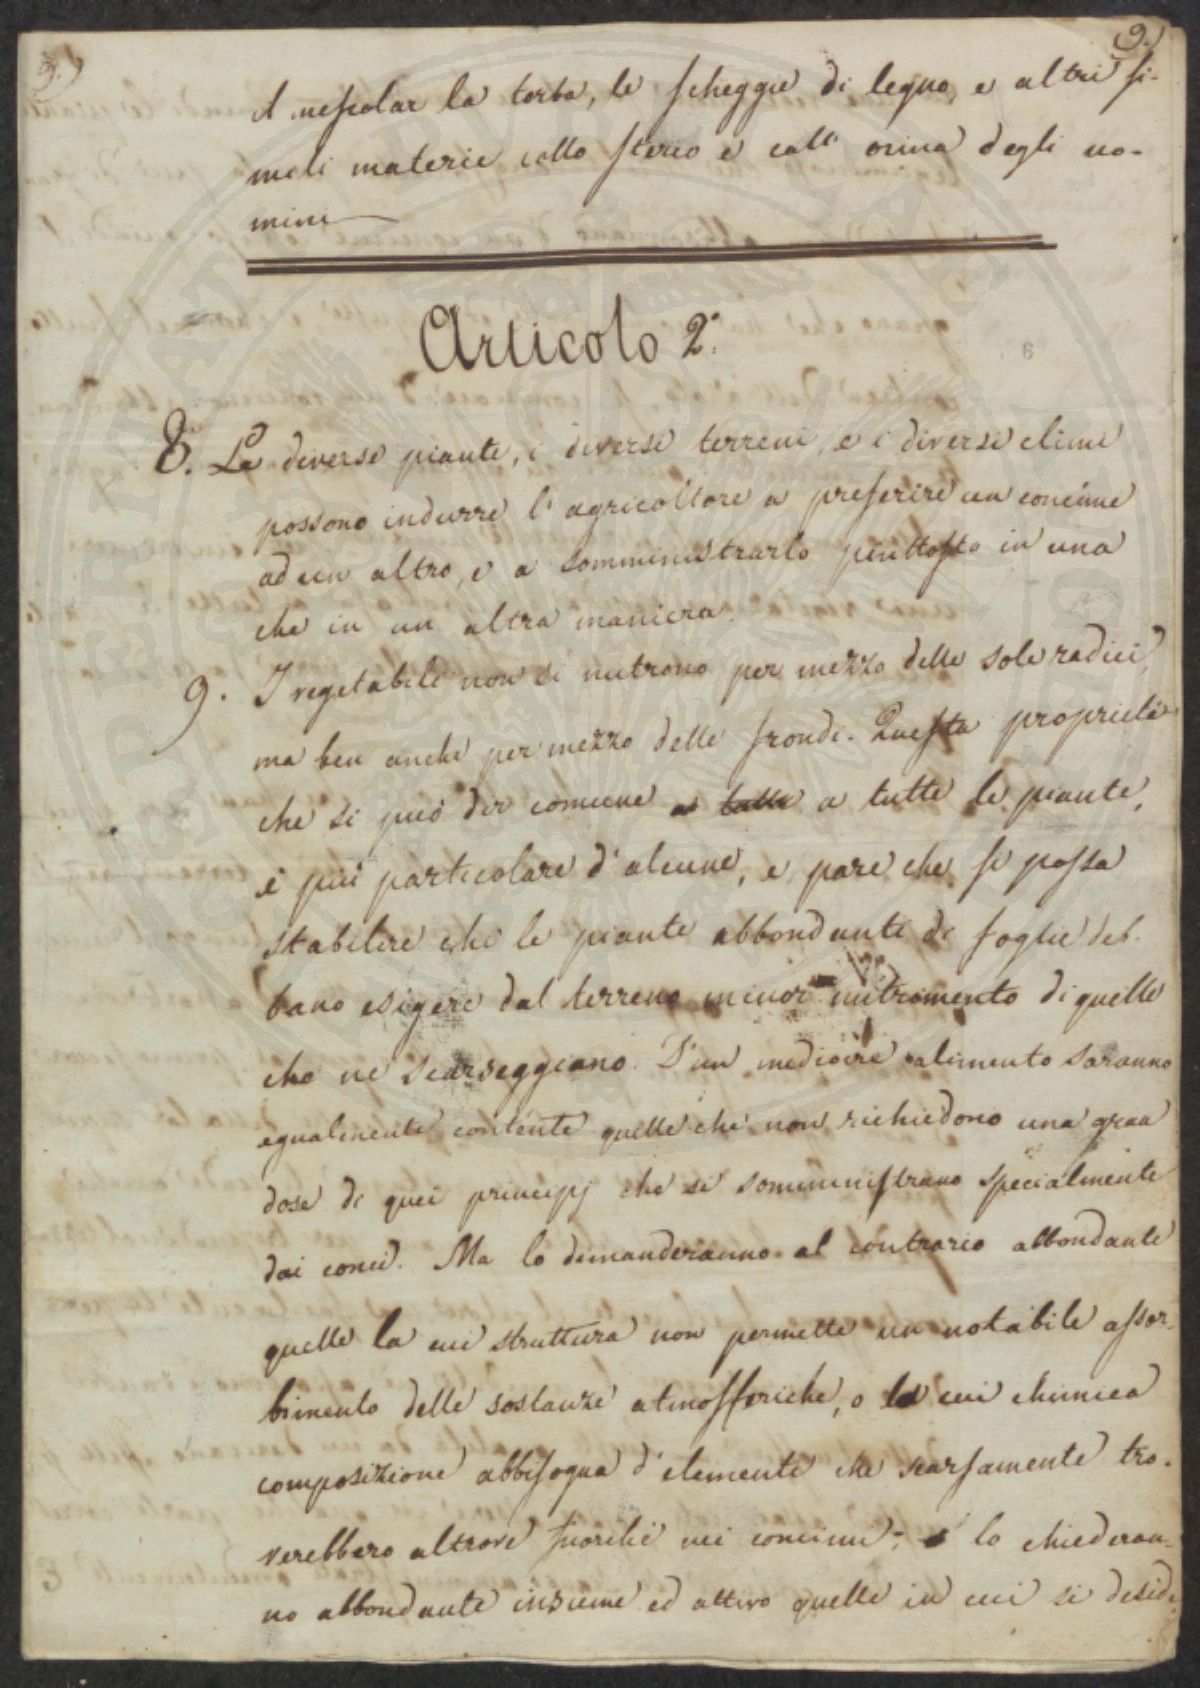 9.
a mescolar la torba, le scheggie di legno, e altri si-
mili materie collo sterco e coll' orina degli uo-
mini
Articolo 2°.
6
8. Le diverse piante, i diversi terreni, e i diversi climi
possono indurre l'agricoltore a preferire un concime
ad un altro, e a somministrarlo piuttosto in una
che in un altra maniera.
9. I vegetabili non si nutrono per mezzo delle sole radici,
ma ben anche per mezzo delle frondi. Questa proprietà
che si può dir comune a tutte a tutte le piante,
è più particolare d'alcune, e pare che si possa
stabilire che le piante abbondanti di foglie deb-
bano esigere dal terreno minor nutrimento di quelle
che ne scarseggiano. D'un mediocre alimento saranno
egualmente contente quelle che non richiedono una gran
dose di quei principj che si somministrano specialmente
dai concii. Ma lo dimanderanno al contrario abbondante
quelle la cui struttura non permette un notabile assor-
bimento delle sostanze atmosferiche, o la cui chimica
composizione abbisogna d'elementi che scarsamente tro-
verebbero altrove fuorchè nei concimi; lo chiederan-
no abbondante insieme ed attivo quelle in cui si deside